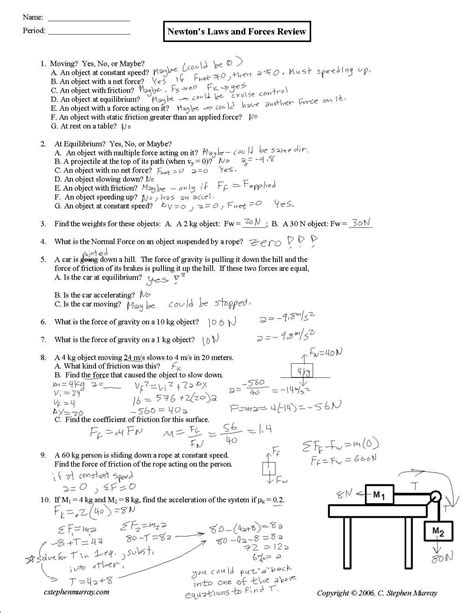 Name:
Period:
Newton's Laws and Forces Review
1. Moving? Yes, No, or Maybe?
A. An object at constant speed? Maybe (could be 0)
B. An object with a net force? Yes if Fnet ≠ 0, then a ≠ 0. Must speeding up.
C. An object with friction? Maybe. Fs → no Fk → yes
D. An object at equilibrium? Maybe → could be cruise control
E. An object with a force acting on it? Maybe → could have another force on it.
F. An object with static friction greater than an applied force? No
G. At rest on a table? No
2. At Equilibrium? Yes, No, or Maybe?
A. An object with multiple force acting on it? Maybe - could be same dir.
B. A projectile at the top of its path (when vy = 0)? No a = -9.8
C. An object with no net force? Fnet = 0 a = 0 Yes.
D. An object slowing down? No
E. An object with friction? Maybe - only if Ff = Fapplied
F. An object speeding up? No, has an accel.
G. An object at constant speed? ΔV = 0, a = 0, Fnet = 0 Yes
3. Find the weights for these objects: A. A 2 kg object: Fw = 20N ; B. A 30 N object: Fw = 30N
4. What is the Normal Force on an object suspended by a rope? zero!!!
pointed
5. A car is going down a hill. The force of gravity is pulling it down the hill and the
force of friction of its brakes is pulling it up the hill. If these two forces are equal,
A. Is the car at equilibrium? yes!
B. Is the car accelerating? No
C. Is the car moving? Maybe could be stopped.
6. What is the force of gravity on a 10 kg object? 100N a = -9.8m/s²
7. What is the force of gravity on a 1 kg object? 10N a = -9.8m/s²
8. A 4 kg object moving 24 m/s slows to 4 m/s in 20 meters.
A. What kind of friction was this? Fk
B. Find the force that caused the object to slow down.
FN = 40N
4kg
m = 4kg a = __ vf² = vi² + 2aΔx
vi = 24 16 = 576 + 2(20)a a = -560/40 = -14m/s²
vf = 4 -560 = 40a F = ma = 4(-14) = -56N
Δx = 20
C. Find the coefficient of friction for this surface.
Ff = μFN μ = Ff/FN = 56/40 = 1.4
9. A 60 kg person is sliding down a rope at constant speed.
Find the force of friction of the rope acting on the person.
if at constant speed
a = 0, ΣF = 0
Ff
Fw
ΣFf - Fw = m(0)
Ff = Fw = 600N
10. If M1 = 4 kg and M2 = 8 kg, find the acceleration of the system if μk = 0.2.
Fk = .2(40) = 8N
ΣF = ma ΣF = m2a 80 - (4a+8) = 8a
-8 + T = 4a 80 - T = 8a 80 - 4a - 8 = 8a
72 = 12a
6m/s² = a
*solve for T in 1 eq., subst,
into other
T = 4a + 8
you could put "a" back
into one of the above
equations to find T.
8N
M1
T
T
M2
80N
cstephenmurray.com
Copyright © 2006, C. Stephen Murray